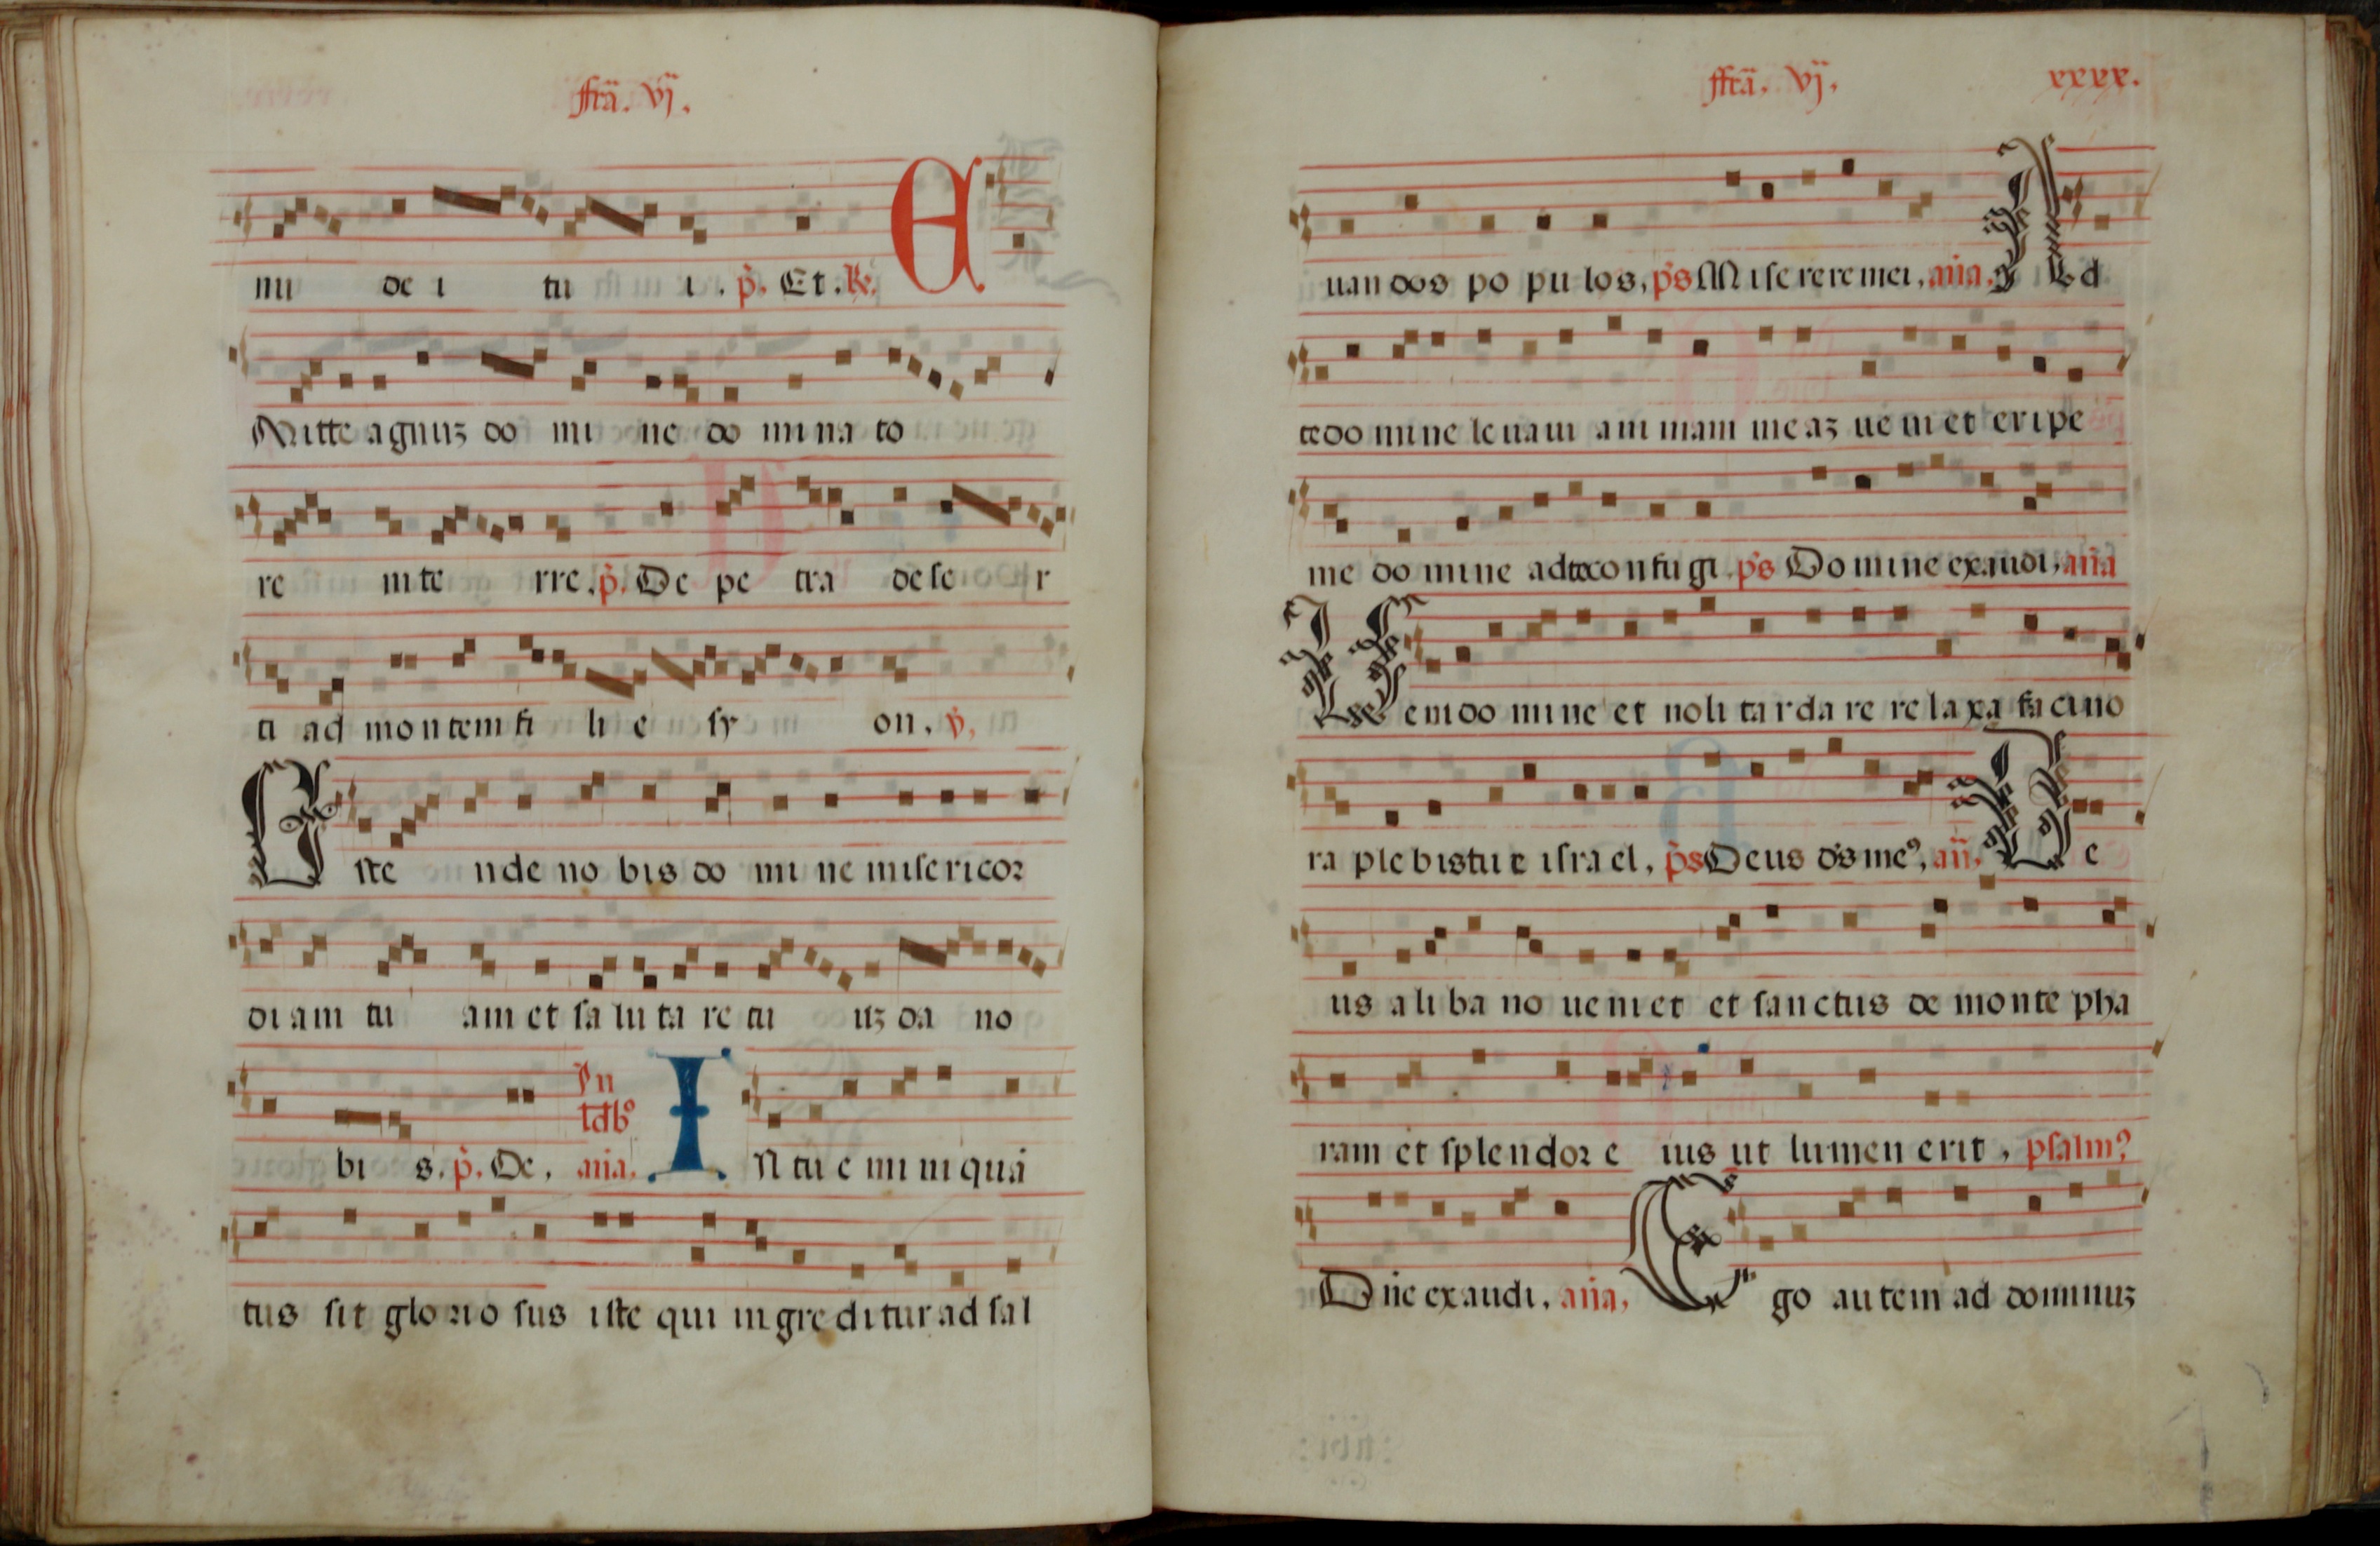 ffrā. vj.
mi de i tu i. p̄. Et. Re. E
Mitte agnuʒ do mi ne do mi na to
re m te rre. p̄. De pe tra de se r
ti ad mon tem fi li e sy on. v̄.
O ste nde no bis do mi ne mise ricoꝛ
di am tu am et sa lu ta re tu uʒ da no
In
bi s. p̄. De. aña. I N tu e mi ni quā
tus sit glo ꝛi o sus iste qui in gre di tur ad sal
ffrā. vj. xxxx.
uan dos po pu los. ps Mise rere mei. aña. A d
te do mi ne le uaui ani mam meaʒ ue ni et eripe
me do mi ne ad te con fu gi. ps Do mi ne exaudi. aña
U eni do mi ne et noli tarda re re la xa facino
ra ple bis tu e isra el. ps Deus ds̄ meꝰ. añ. D e
us a li ba no ue ni et et sanctus de monte pha
ram et splendoꝛ e ius ut lumen erit. psalmꝰ
Dñe exaudi. aña. E go au tem ad dominuʒ